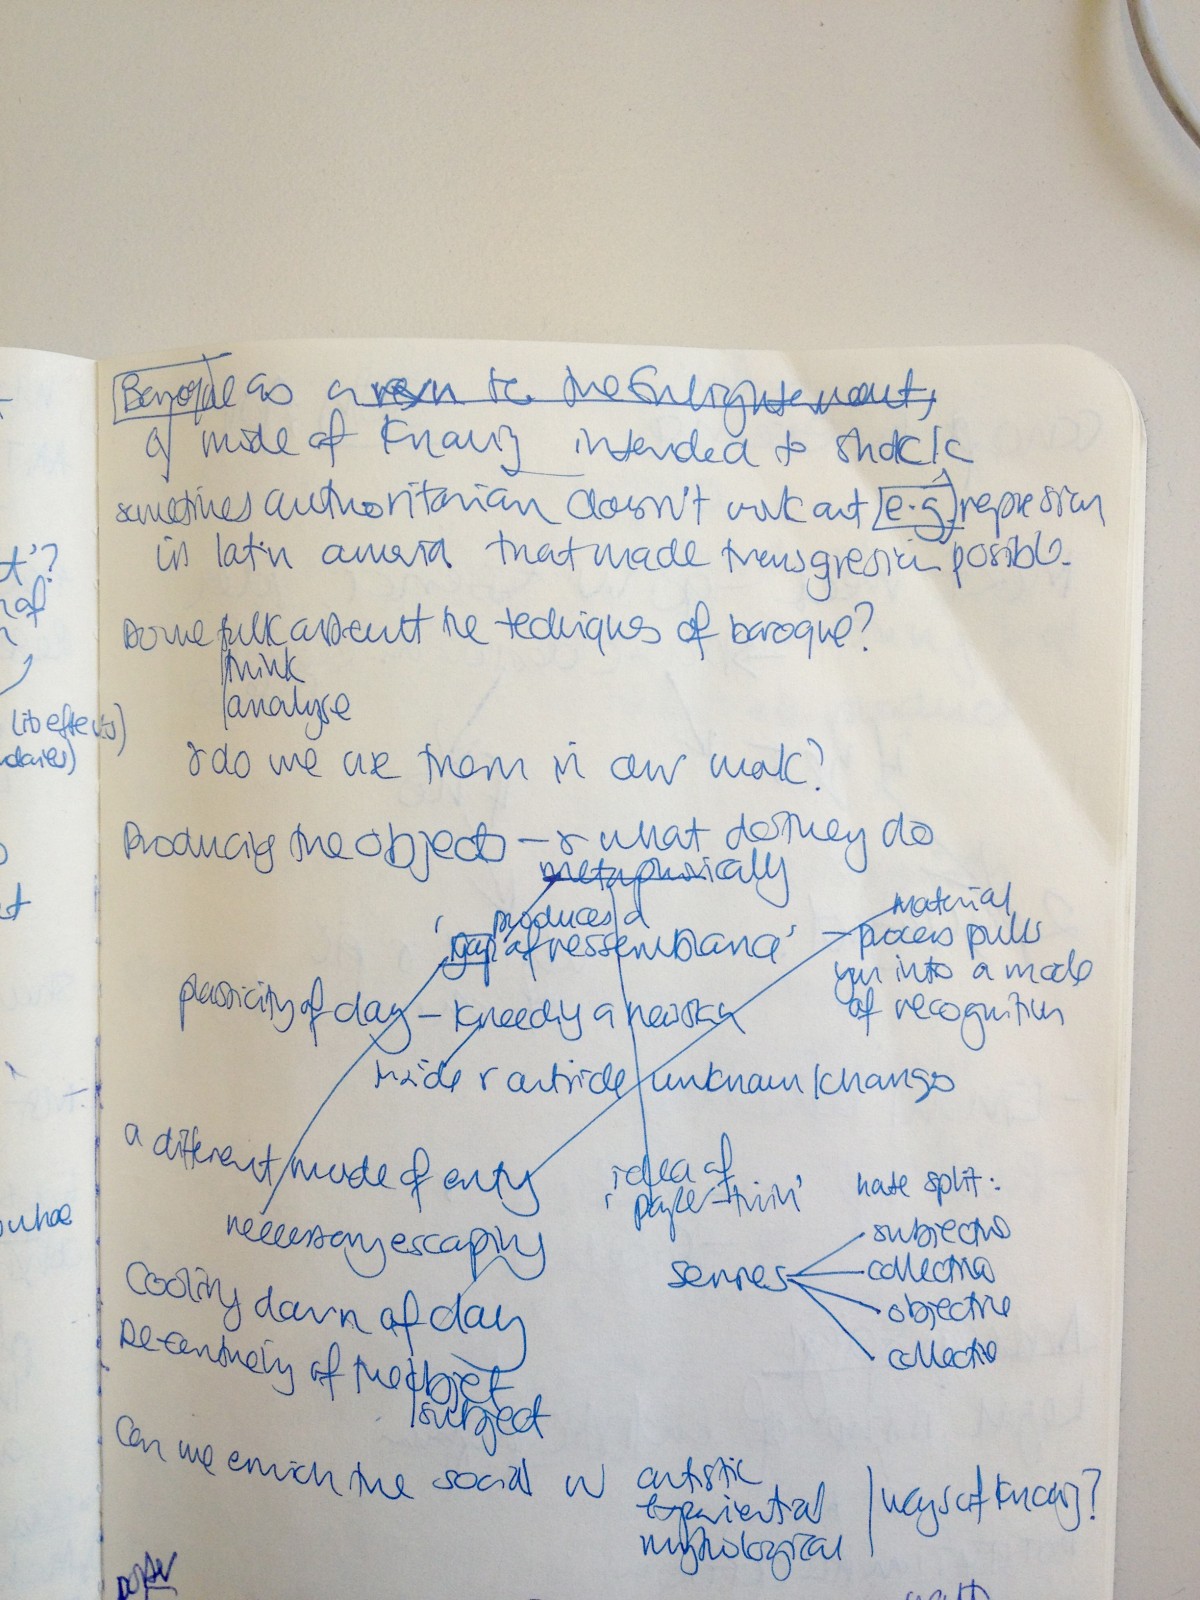 t'?
(ito effects)
Baroque as a to the Enlightenment,
of mode of knowing intended to shock
sometimes authoritarian doesn't work out e.g. repression
in latin america that made transgression possible.
Do we talk about the techniques of baroque?
think
analyse
& do we use them in our work?
Producing the objects – & what do they do
metaphorically
produces a
'gap of ressemblance' – material
process pulls
you into a mode
of recognition
plasticity of clay – kneeding a
inside & outside unknown/change
a different mode of entry
idea of
necessary escaping
hate split:
subjective
senses
collective
objective
collective
Cooling down of clay
of the object
subject
Can we enrich the social w artistic
experiential
mythological
ways of knowing?